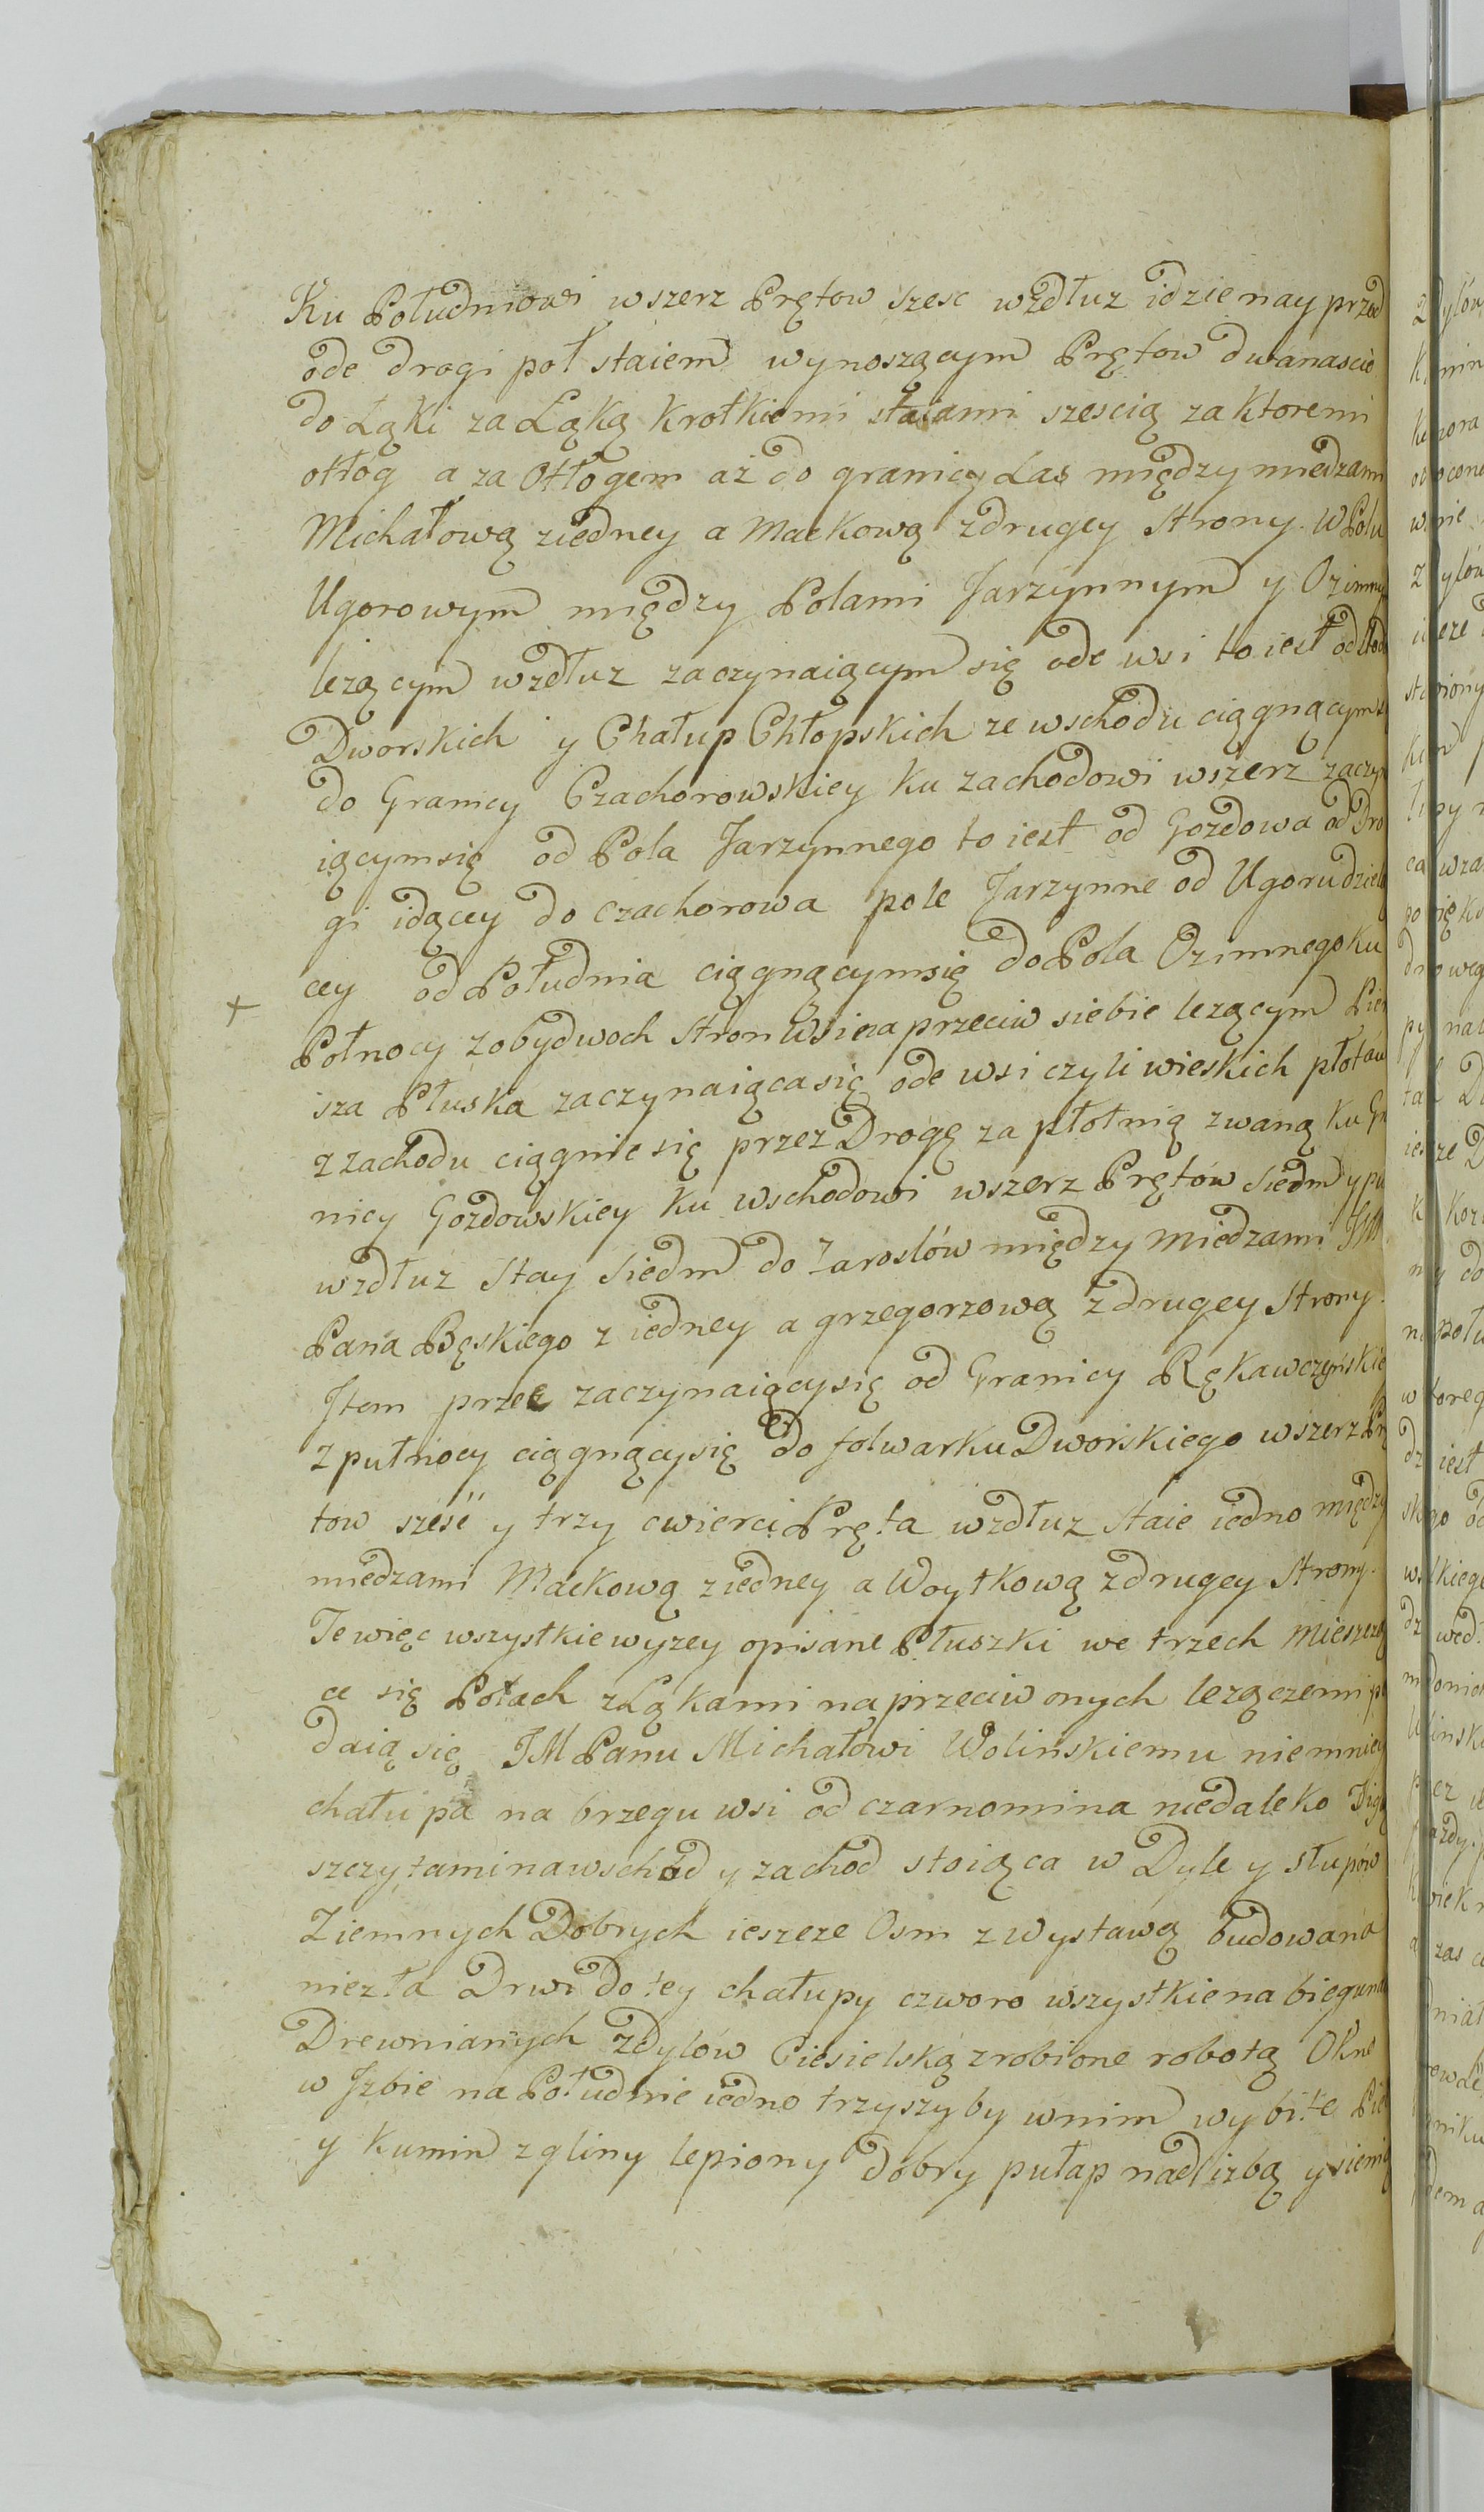 Ku Południowi wszerz Prętow szesc wzdłuz idzie nay przod
ode drogi poł staiem wynoszącym Prętow dwanascie
do Łąki za Łąką krotkiemi staiami szescią za ktoremi
otłog a za Otłogem aż do granicy Las między miedzami
Michałową ziedney a Mackową zdrugey Strony. W Polu
Ugorowym między Polami Jarzynnym y Ozimny
lezącym wzdłuz zaczynaiącym się ode wsi to iest od
Dworskich y Chałup Chłopskich ze wschodu ciągnącym s
do Granicy Czachorowskiey ku zachodowi wszerz zaczyn
iącymsię od Pola Jarzynnego to iest od Gozdowa od Dro
gi idącey do Czachorowa pole Jarzynne od Ugoru dzielą
cey od Południa ciągnącymsię do Pola Ozimnego ku
+ Połnocy zobydwoch Stron Wsi na przeciw siebie lezącym Pier
sza Płuska zaczynaiącasię ode wsi czyli wieskich płotow
z zachodu ciągnie się przez Drogę za płotnią zwaną ku Gra
nicy Gozdowskiey ku wschodowi wszerz Prętów Siedm y pu
wzdłuz Stay Siedm do Zaroslów między Miedzami JM
Pana Bęskiego z iedney a grzegorzową zdrugey Strony.
Item przez zaczynaiącysię od Granicy Rękawczyńskie
z pułnocy ciągnącysię do folwarku Dworskiego wszerz Prę
tow sześć y trzy cwierci Pręta wzdłuz Staie iedno między
miedzami Mackową ziedney a Woytkową zdrugey Strony.
Te więc wszystkie wyzey opisane Płuszki we trzech mieszczą
ce się Polach z Łąkami naprzeciw onych lezączemi po
daią się JM Panu Michałowi Wolinskiemu niemniey
chałupa na brzegu wsi od czarnomina niedaleko Figu
szczytami na wschód y zachod stoiąca w Dyle y słupów
Ziemnych Dobrych ieszcze Osm z wystawą budowana
niezła Drwi do tey chałupy czworo wszystkie na biegunach
Drewnianych zdylów Ciesielską zrobione robotą Okne
w Izbie na Południe iedno trzy szyby wnim wybite Pie
y Kumin z gliny lepiony dobry pułap nad izbą y sienią